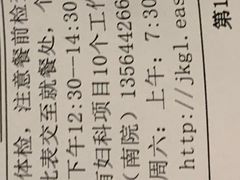 体检，注意餐前检
表交至就餐处，个
下午12:30--14:30
有妇科项目10个工作
（南院）135644266
周六：上午：7:30
http://jkgl.eas
第1